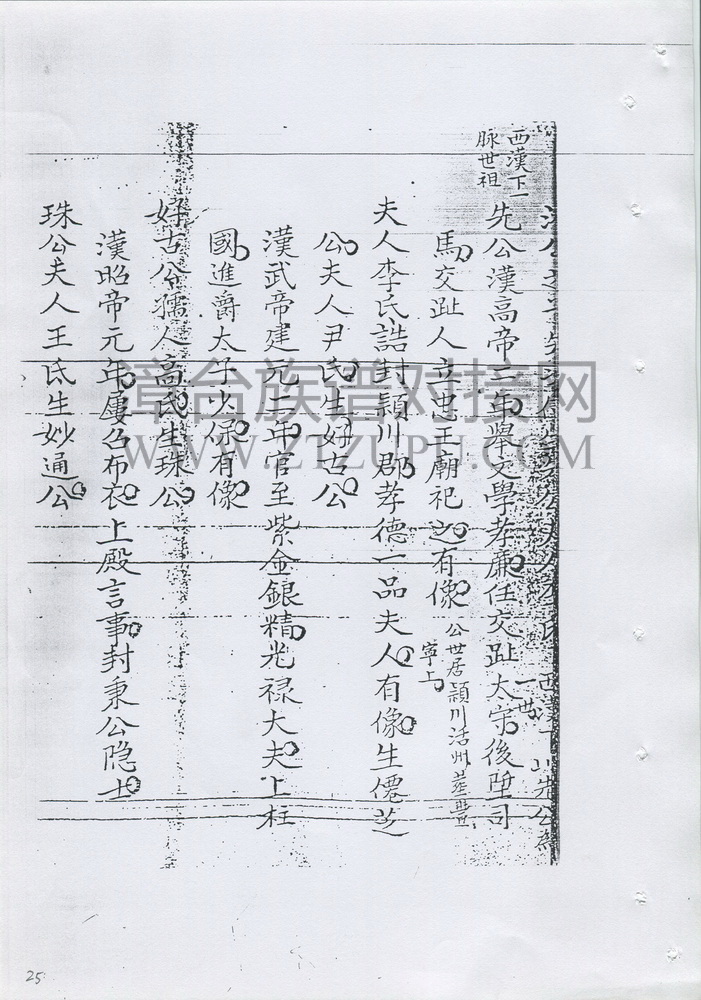 西漢下一
脉世祖
先公漢高帝三年舉文學孝廉任交趾太守後陞司
馬交趾人立忠王廟祀之有像
公世居潁川活州葬豐
寧上
夫人李氏誥封潁川郡孝德一品夫人有像生僊芝
公夫人尹氏生好古公
漢武帝建元二年官至紫金銀精光禄大夫上柱
國進爵太子少保有像
好古公孺人高氏生珠公
漢昭帝元年屢召布衣上殿言事封秉公隐士
珠公夫人王氐生妙通公
漳台族谱对接网
WWW.ZTZUPU.COM
25